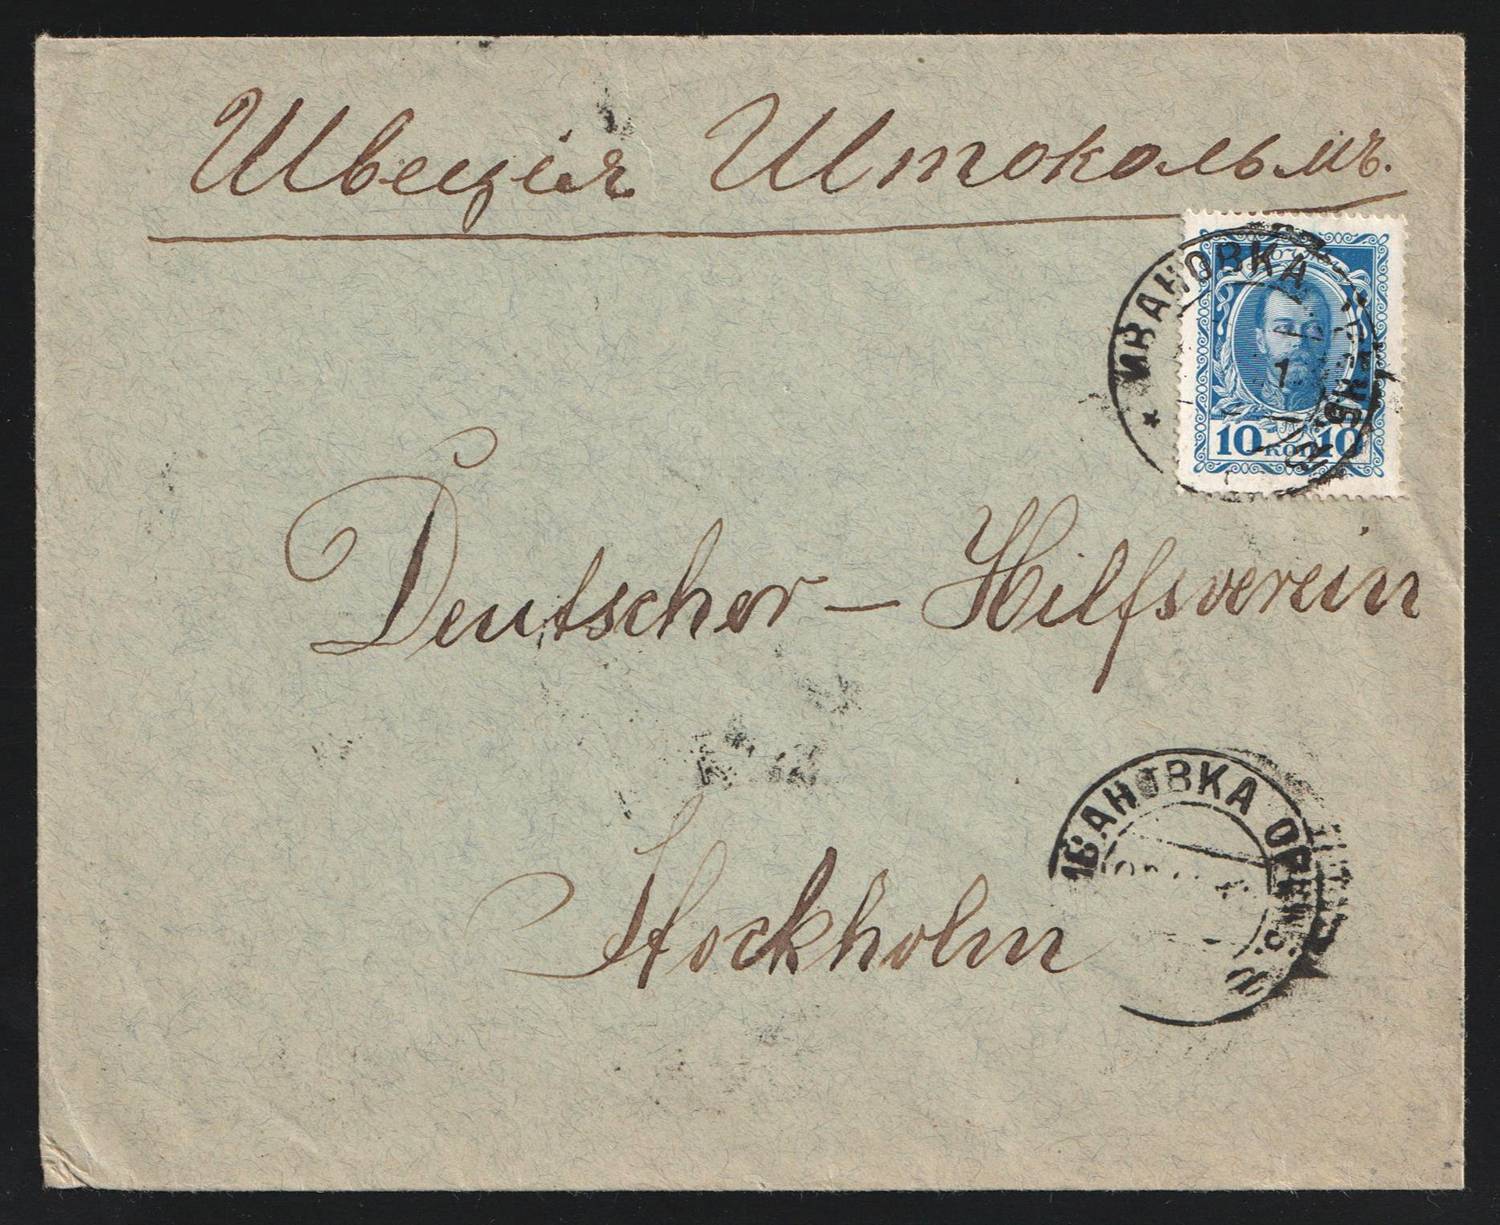 Швеція Штокольмъ.
ИВАНОВКА
10 КОП 10
Deutscher – Hilfsverein
ИВАНОВКА
Stockholm